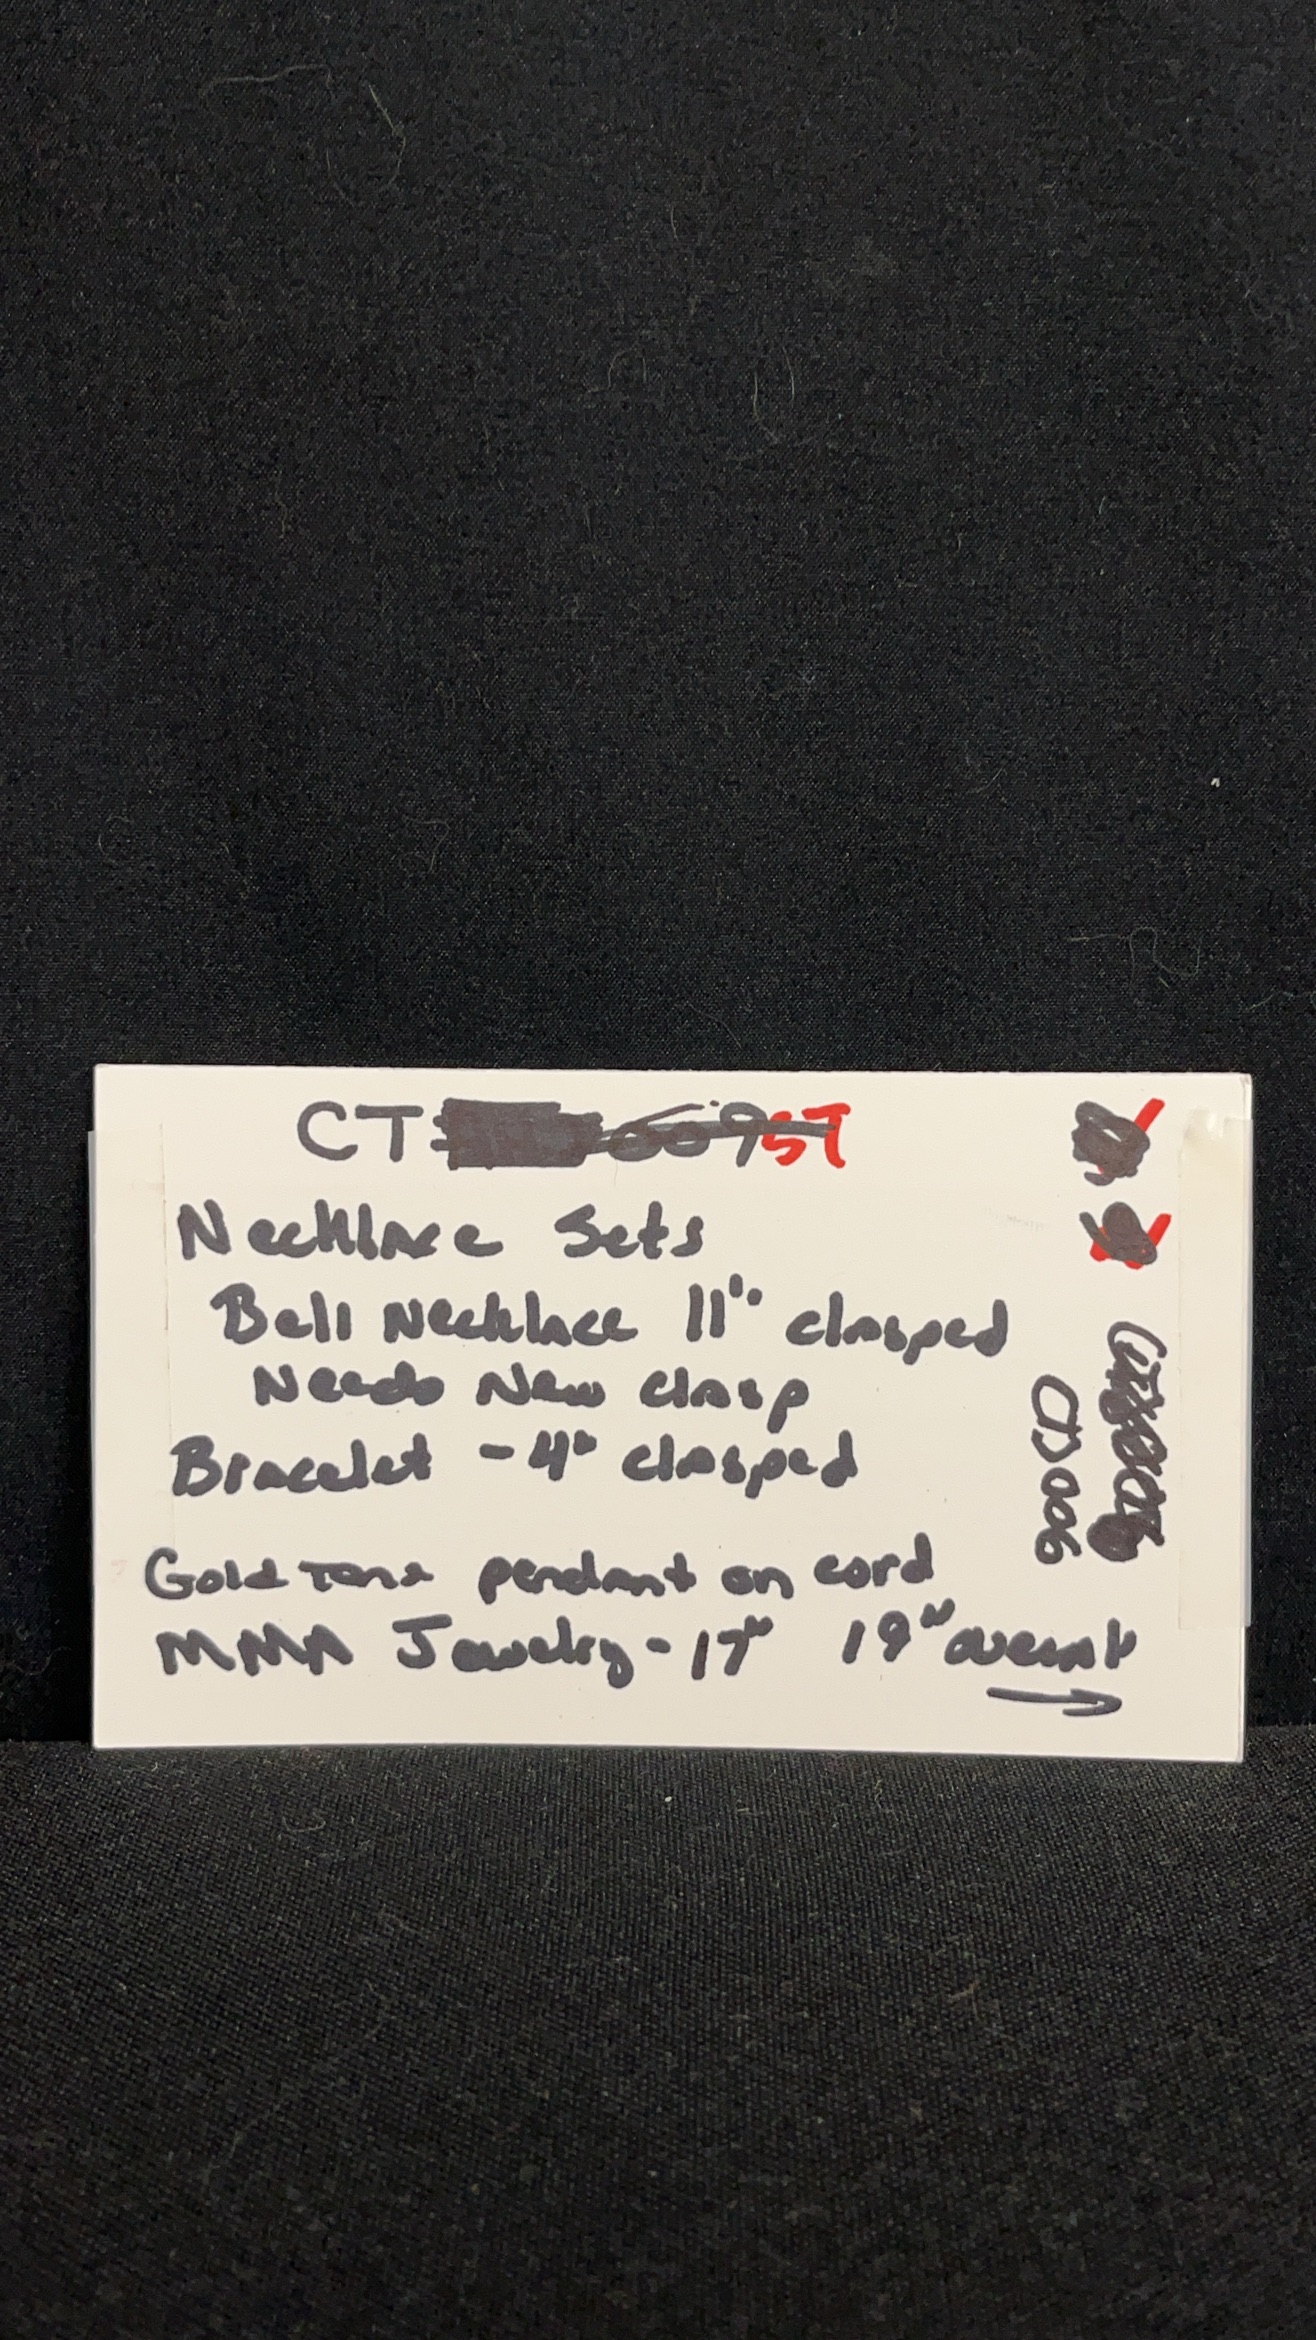 CT 009 ST
Necklace Sets
Bell Necklace 11" clasped
Needs New clasp
Bracelet - 4" clasped
Gold Tone pendant on cord
MMA Jewelry - 17" 19"
CJ006